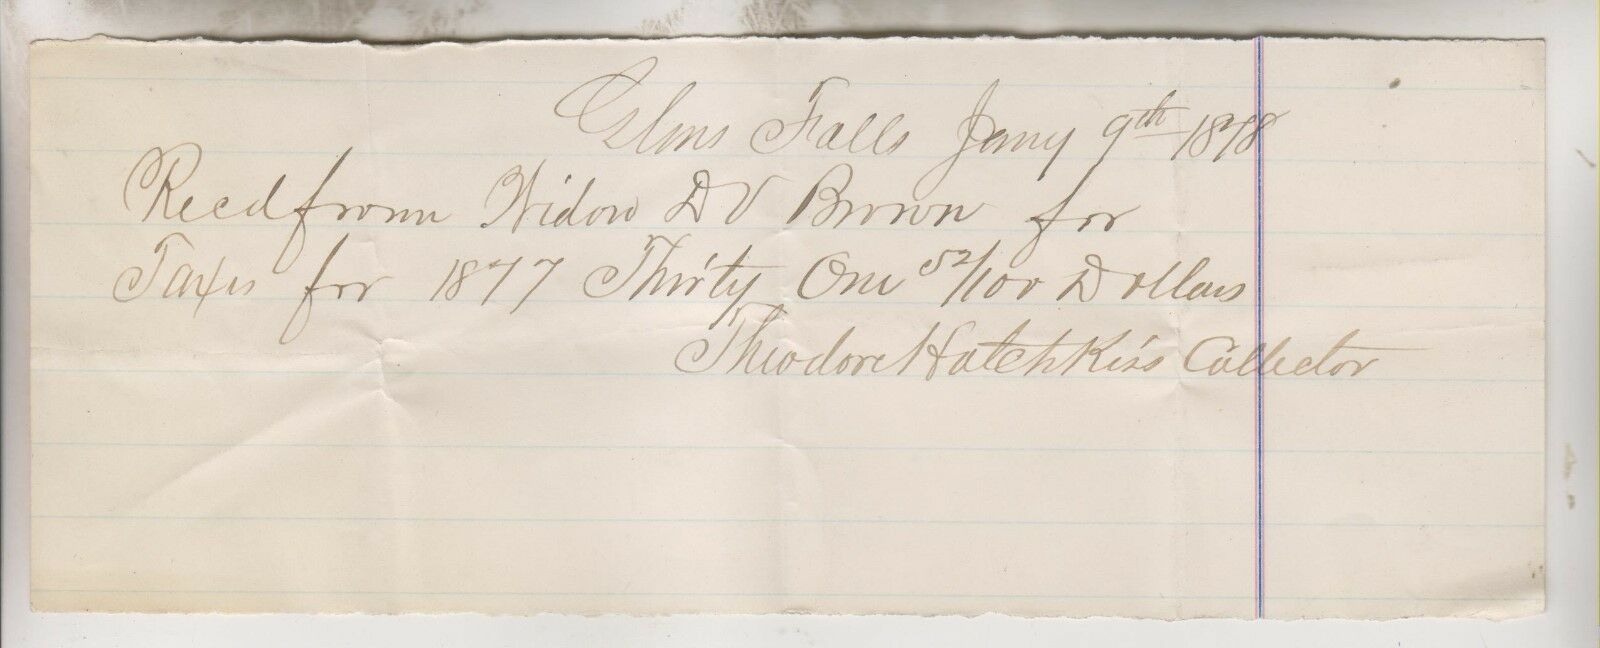 Glens Falls Jany 9th 1878
Recd from Widow D V Brown for
Taxes for 1877 Thirty One 52/100 Dollars
Theodore Hotchkiss Collector